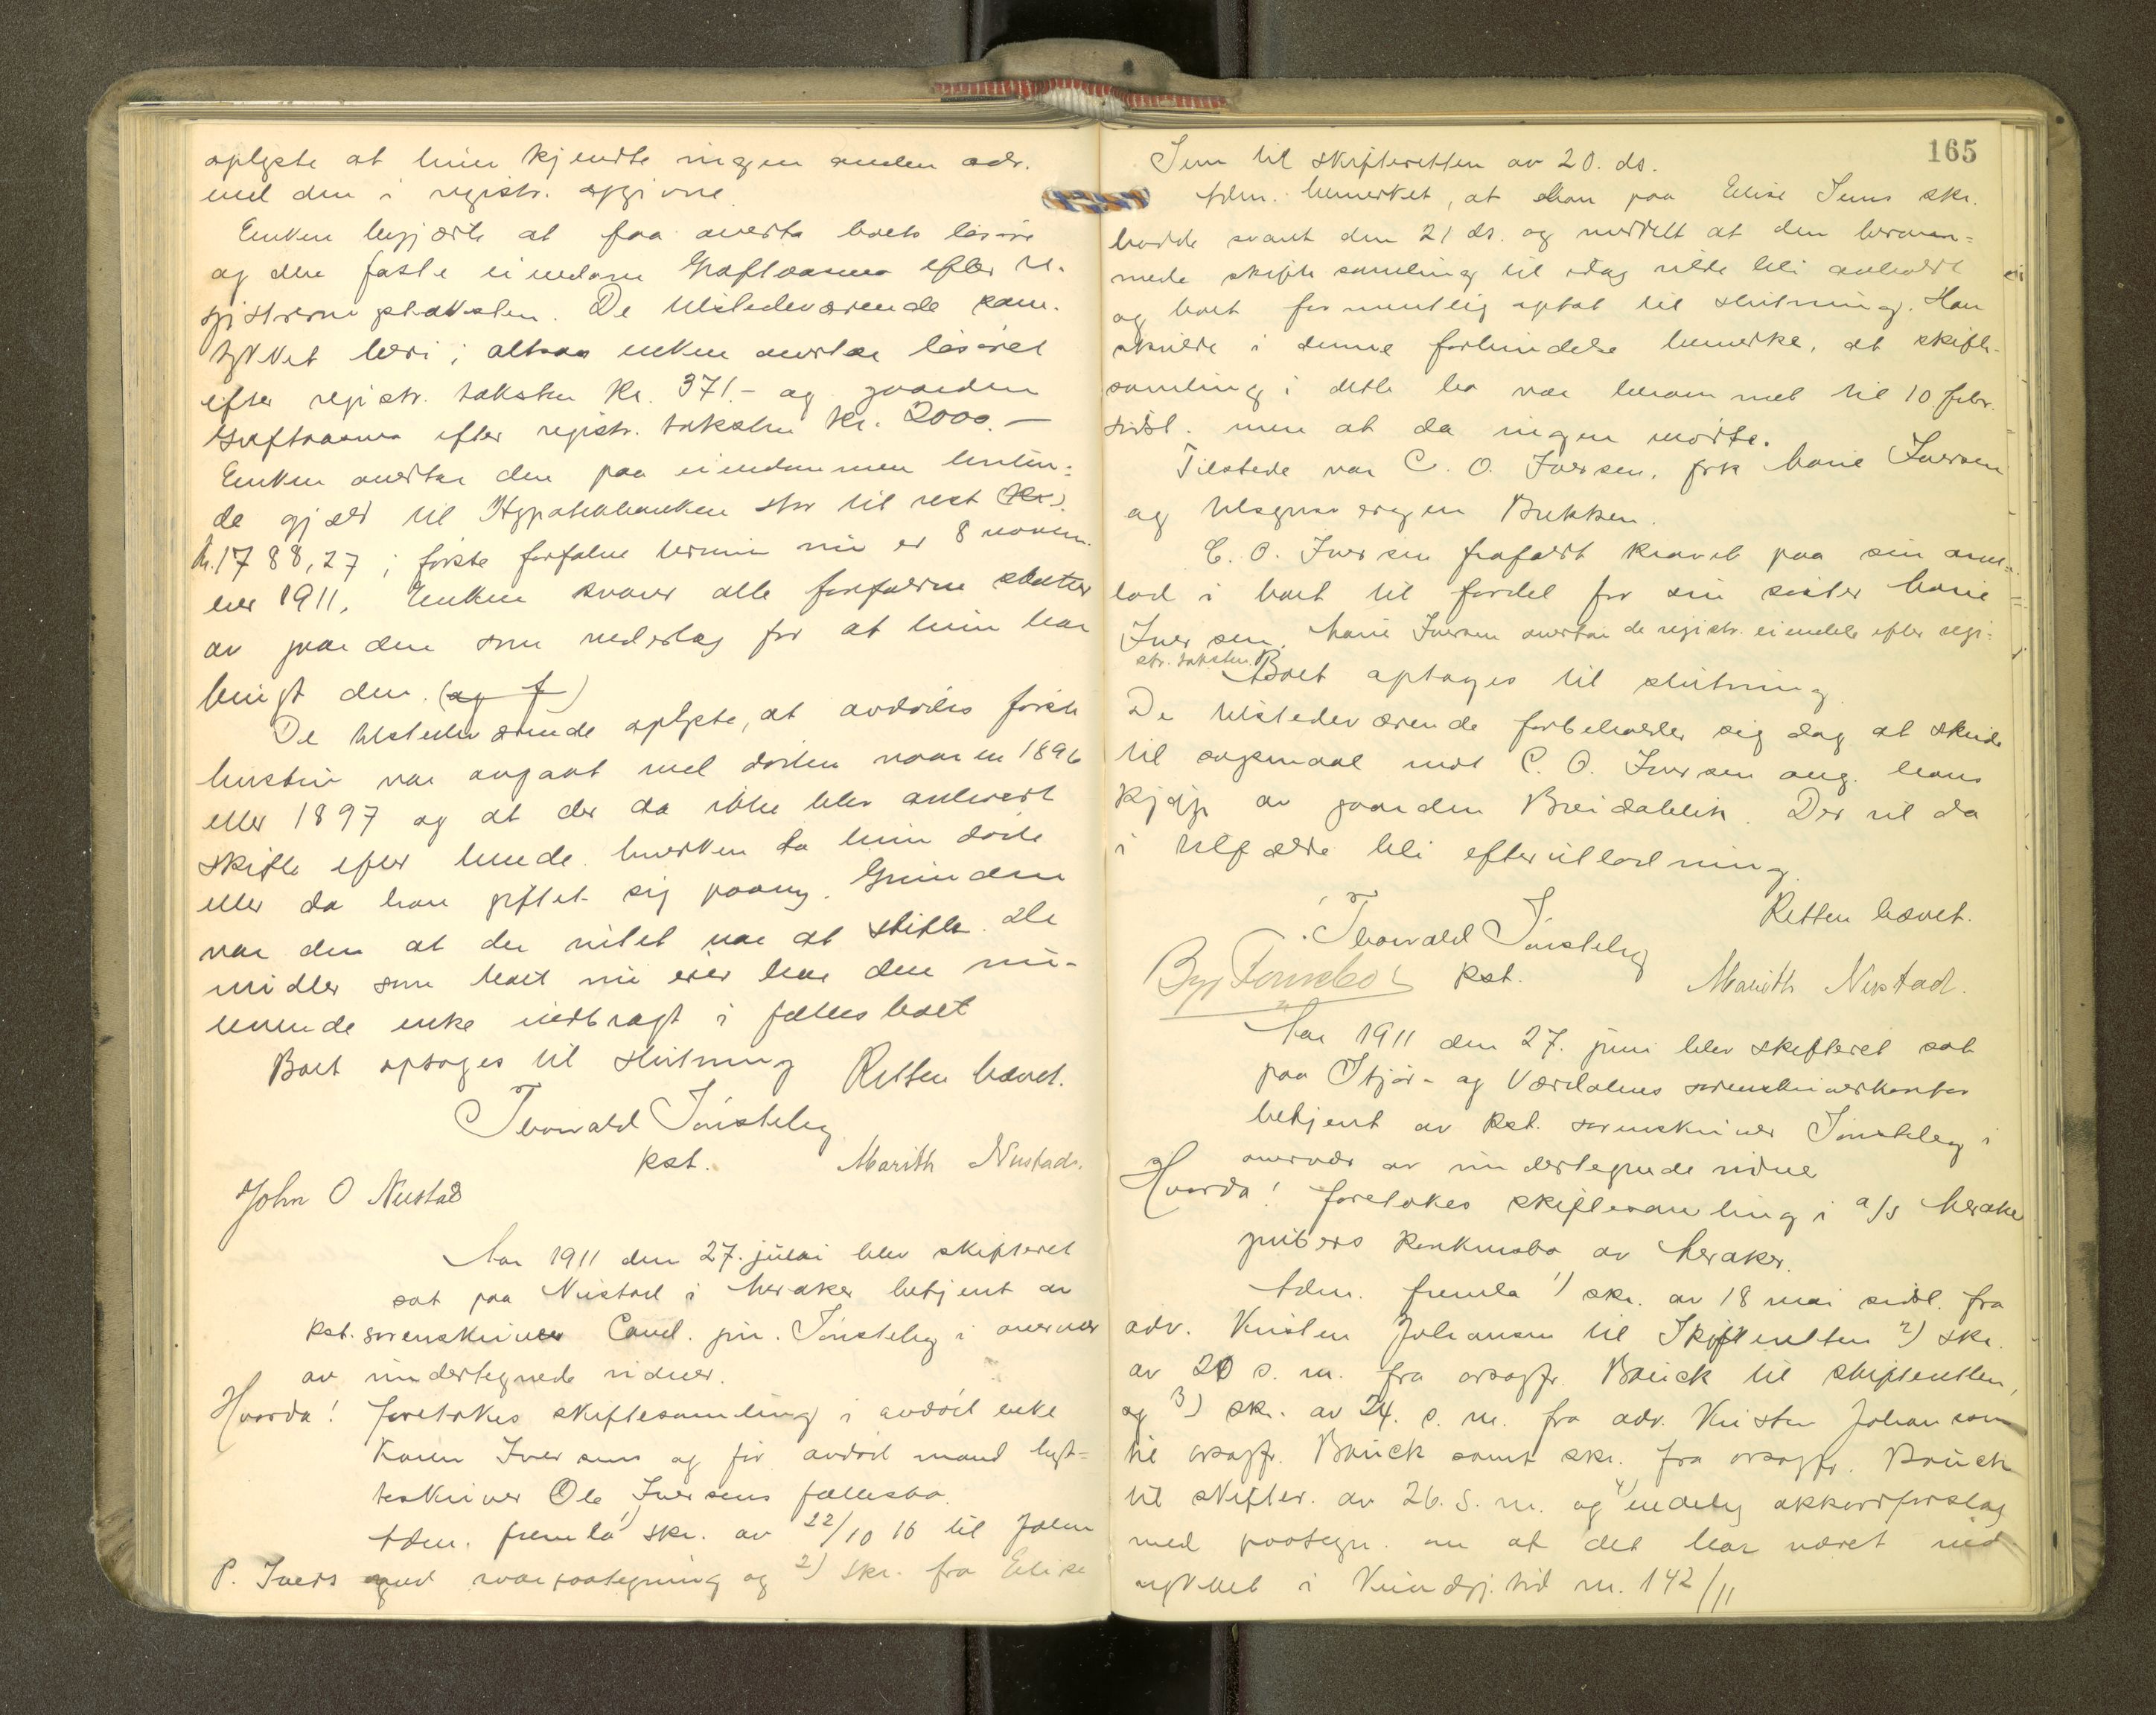 oplyste at hun kjendte ingen anden adr.
end den i registr. opgivne.
Enken begjærte at faa overta boets løsøre
og den faste eiendom Graftaasmo efter re-
gistreringstaksten. De tilstedeværende sam-
tykket heri; altsaa enken overtar løsøret
efter registr. taksten Kr. 371.- og gaarden
Graftaasmo efter registr. taksten Kr. 2000.-
Enken overtar den paa eiendommen heften-
de gjæld til Hypothekbanken stor til rest (Kr.)
Kr. 1788,27; første forfaldne termin nu er 8 novem-
ber 1911. Enken svarer alle forfaldne skatter
av gaarden som vederlag for at hun har
brugt den. (og f)
De tilstedeværende oplyste, at avdødes første
hustru var avgaat ved døden vaaren 1896
eller 1897 og at der da ikke blev anlevert
skifte efter hende hverken da hun døde
eller da han giftet sig paany. Grunden
var den at der intet var at skifte. De
midler som boet nu eier har den nu-
levende enke indbragt i fællesboet
Boet optages til slutning Retten hævet.
Thorvald Tønsteby
kst. Marith Nustad.
John O Nustad
Aar 1911 den 27. juli blev skifteret
sat paa Nustad i Meraker betjent av
kst. sorenskriver Cand. jur. Tønsteby i overvær
av undertegnede vidner.
Hvorda! foretokes skiftesamling i avdød enke
Karen Iversens og før avdød mand lyst-
teskriver Ole Iversens fællesbo.
Adm. fremla 1) skr. av 22/10 10 til John
P. Ivers med svarpaategning og 2) skr. fra Elise
165
Iven til skifteretten av 20. ds.
Adm. bemerket, at han paa Elise Ivens skr.
hadde svart den 21 ds. og meddelt at den beram-
mede skiftesamling til idag vilde bli avholdt
og boet formentlig optat til slutning. Han
skulde i denne forbindelse bemerke, at skifte-
samling i dette bo var berammet til 10 febr.
sidstl. men at da ingen møtte.
Tilstede var C. O. Iversen, frk Marie Iversen
og tilsynsvergen Bukken.
C. O. Iversen frafaldt kravet paa sin arve-
lod i boet til fordel for sin søster Marie
Iversen. Marie Iversen overtar de registr. eiendele efter regi-
str. taksten.
Boet optages til slutning.
De tilstedeværende forbeholder sig dag at skride
til søgsmaal mot C. O. Iversen ang. hans
kjøp av gaarden Breidablik. Der vil da
i tilfælde bli efterutlodning.
Retten hævet.
Thorvald Tønsteby
kst. Marith Nustad.
Aar 1911 den 27. juni blev skifteret sat
paa Stjør- og Værdalens sorenskriverkontor
betjent av kst. sorenskriver Tønsteby i
overvær av undertegnede vidne
Hvorda! foretokes skiftesamling i a/s Meraker
grubers konkursbo av Meraker.
Adm. fremla 1) skr. av 18 mai sidstl. fra
adv. Kristen Johansen til Skifteretten 2) skr.
av 20 s. m. fra orsagfr. Bauck til skifteretten,
og 3) skr. av 24. s. m. fra adv. Kristen Johansen
til orsagfr. Bauck samt skr. fra orsagfr. Bauck
til skifter. av 26. s. m. og 4) endelig akkordforslag
med paategn. om at det har været ind-
rykket i Kundgj. tid nr. 142/11